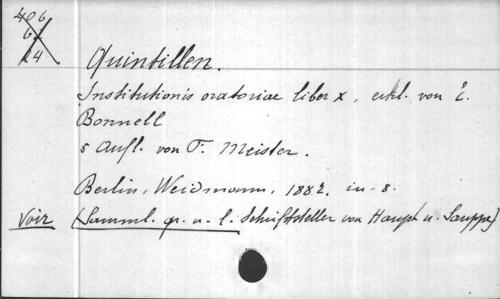 406
6
24
Quintilien.
Institutionis oratoriae liber X, erkl. von E.
Bonnell
5 Aufl. von F. Meister.
Berlin, Weidmann, 1882. in-8.
Voir (Samml. gr. u. l. Schriftsteller von Haupt u. Sauppe)